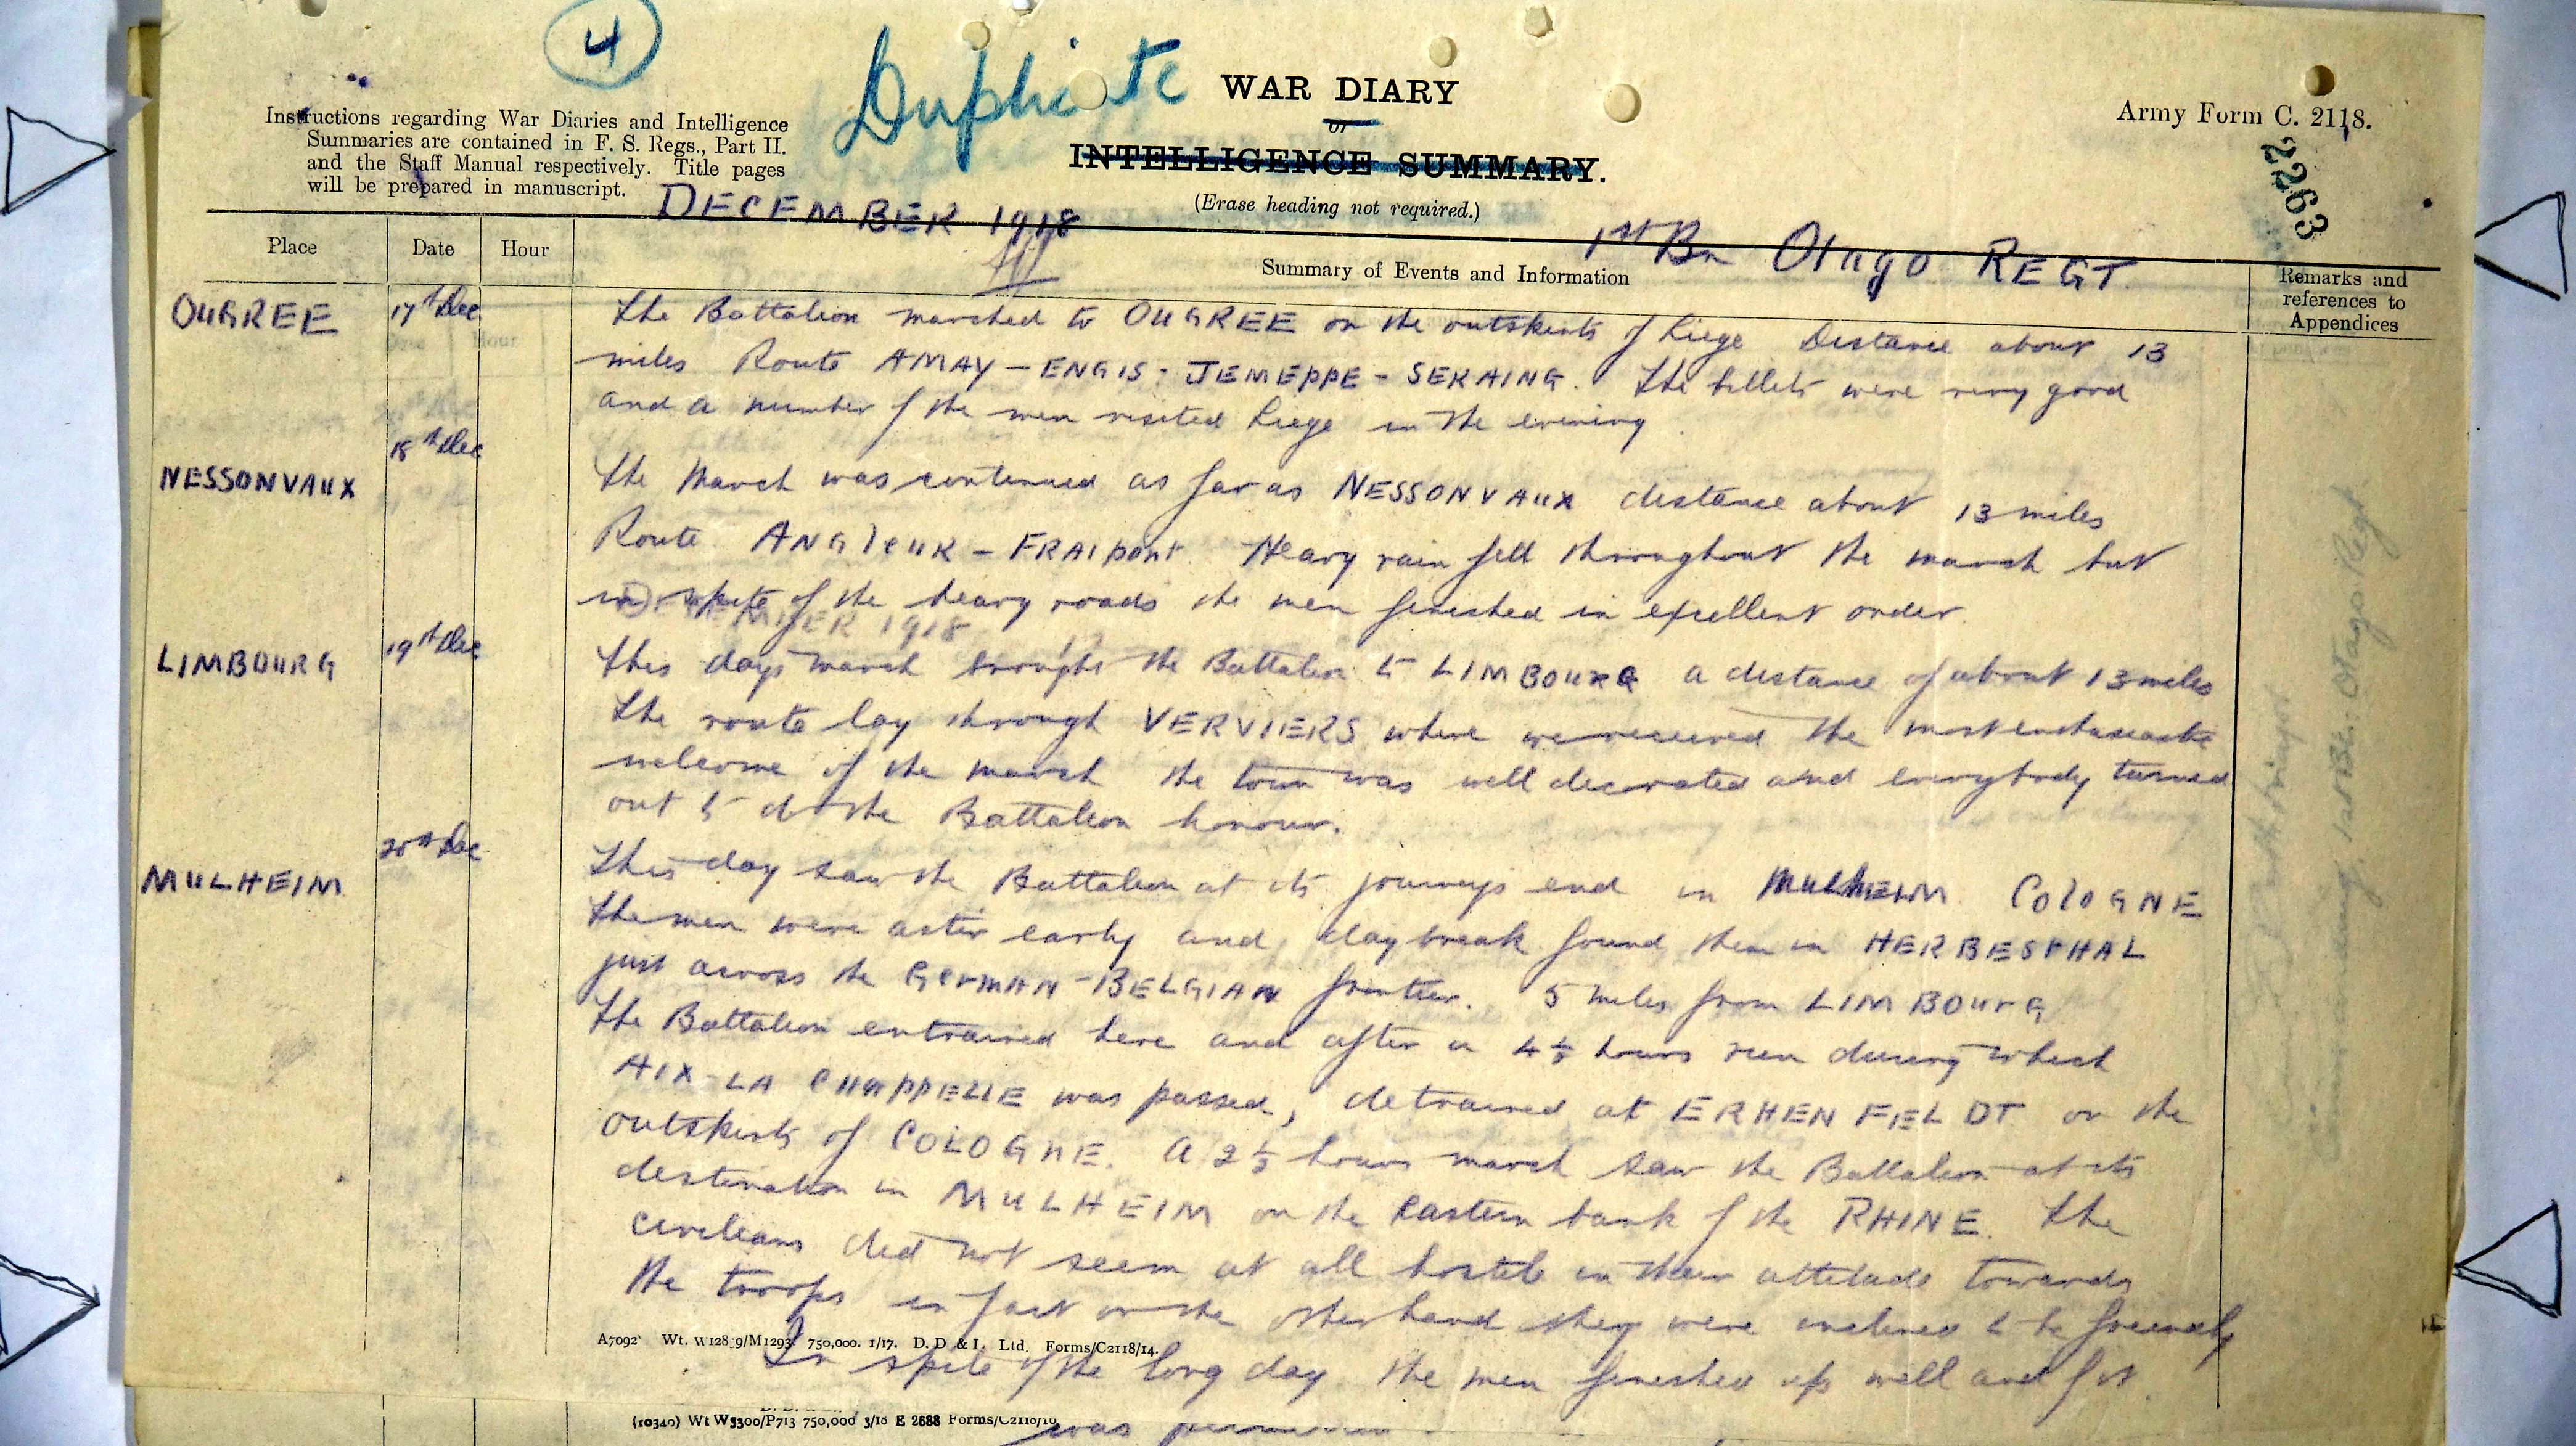 4
Duplicate
WAR DIARY
or
INTELLIGENCE SUMMARY.
(Erase heading not required.)
Army Form C. 2118.
2263
Instructions regarding War Diaries and Intelligence
Summaries are contained in F. S. Regs., Part II.
and the Staff Manual respectively. Title pages
will be prepared in manuscript.
DECEMBER 1918
1st Bn Otago REGT.
Place
Date
Hour
Summary of Events and Information
Remarks and
references to
Appendices
OUGREE 17th Dec
The Battalion marched to OUGREE on the outskirts of Liege Distance about 13
miles Route AMAY - ENGIS - JEMEPPE - SERAING. The billets were very good
and a number of the men visited Liege in the evening
NESSONVAUX 18th Dec
The March was continued as far as NESSONVAUX distance about 13 miles
Route ANGleUR - FRAIPONT. Heavy rain fell throughout the march but
in spite of the heavy roads the men finished in excellent order.
LIMBOURG 19th Dec
This days march brought the Battalion to LIMBOURG a distance of about 13 miles
The route lay through VERVIERS where we received the most enthusiastic
welcome of the march the town was well decorated and everybody turned
out to do the Battalion honour.
MULHEIM 20th Dec
This day saw the Battalion at its journeys end in MULHEIM COLOGNE
The men were astir early and daybreak found them in HERBESTHAL
just across the GERMAN-BELGIAN frontier. 5 miles from LIMBOURG
The Battalion entrained here and after a 4½ hours run during which
AIX-LA CHAPPELLE was passed, detrained at ERHENFELDT on the
outskirts of COLOGNE. A 2½ hours march saw the Battalion at its
destination in MULHEIM on the Eastern bank of the RHINE. The
civilians did not seem at all hostile in their attitude towards
the troops in fact on the other hand they were inclined to be friendly
In spite of the long day the men finished up well and fit.
A7092 Wt. W128_9/M1293 750,000. 1/17. D. D & L. Ltd. Forms/C2118/14.
(10340) Wt W5300/P713 750,000 3/18 E 2688 Forms/C2118/16
was